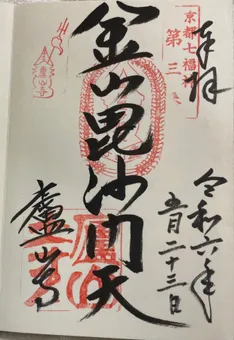 奉拝
京都七福神
第三
金山毘沙門天
令和六年
五月二十三日
廬山寺